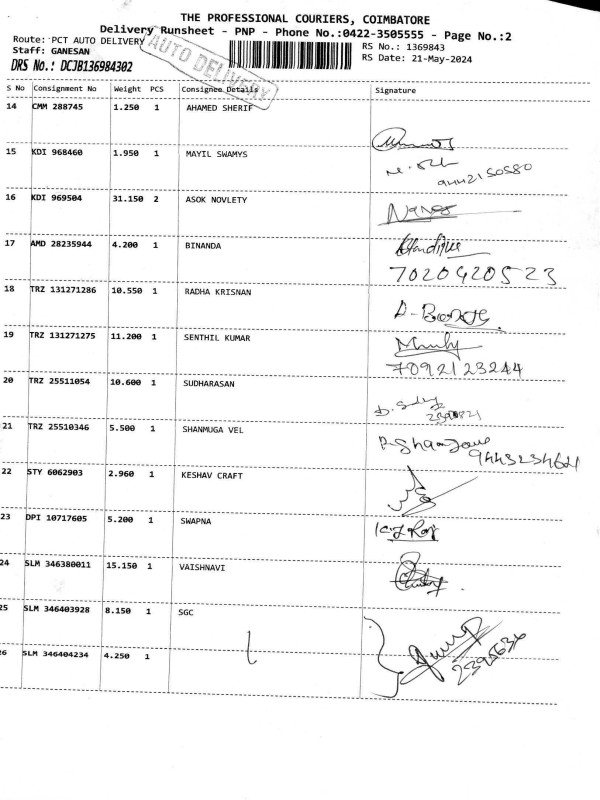 THE PROFESSIONAL COURIERS, COIMBATORE
Delivery Runsheet - PNP - Phone No.:0422-3505555 - Page No.:2
Route: PCT AUTO DELIVERY RS No.: 1369843
Staff: GANESAN RS Date: 21-May-2024
AUTO DELIVERY
DRS No.: DCJB136984302
S No Consignment No Weight PCS Consignee Details Signature
14 CMM 288745 1.250 1 AHAMED SHERIF
15 KDI 968460 1.950 1 MAYIL SWAMYS
9442150580
16 KDI 969504 31.150 2 ASOK NOVLETY
17 AMD 28235944 4.200 1 BINANDA
7020420523
18 TRZ 131271286 10.550 1 RADHA KRISNAN
19 TRZ 131271275 11.200 1 SENTHIL KUMAR
7092123244
20 TRZ 25511054 10.600 1 SUDHARASAN
21 TRZ 25510346 5.500 1 SHANMUGA VEL
22 STY 6062903 2.960 1 KESHAV CRAFT
23 DPI 10717605 5.200 1 SWAPNA
24 SLM 346380011 15.150 1 VAISHNAVI
25 SLM 346403928 8.150 1 SGC
26 SLM 346404234 4.250 1